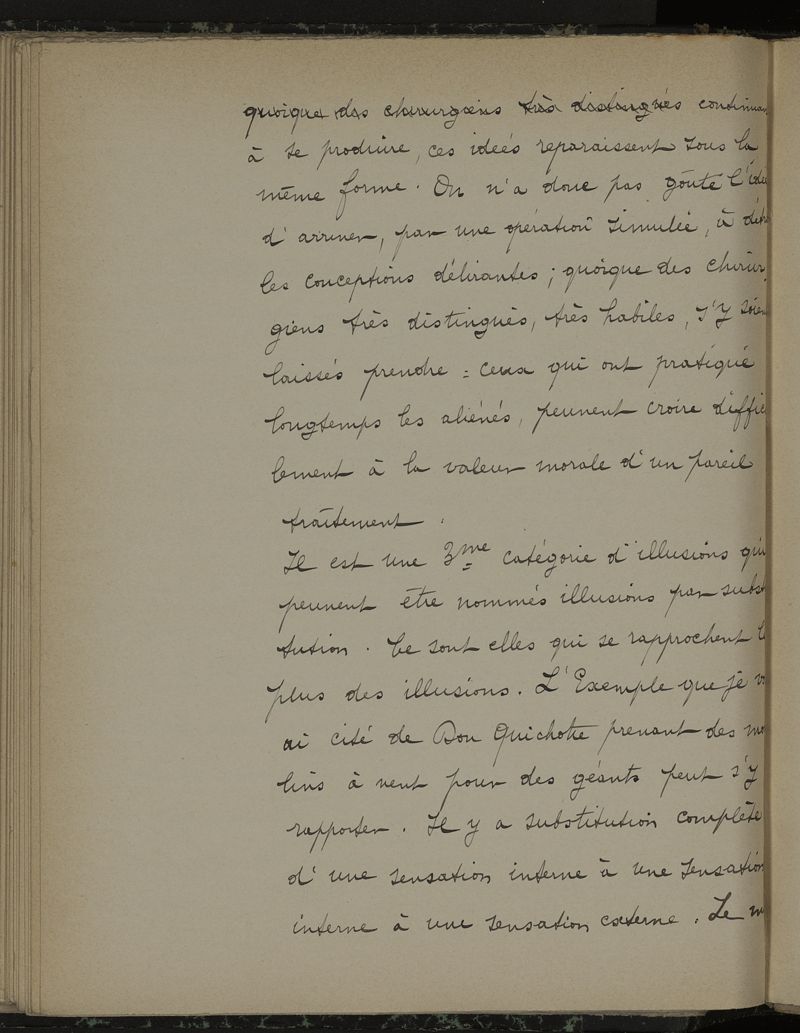 quoique des chirurgiens très distingués continuan
à se produire, ces ideés reparaissent sous la
même forme. On n'a donc pas goûté l'idée
d'arriver, par une opération simulée, à détr
les conceptions délirantes ; quoique des chirur
giens très distingués, très habiles, s'y soien
laissés prendre = ceux qui ont pratiqué
longtemps les aliénés, peuvent croire diffici
lement à la valeur morale d'un pareil
traitement.
Il est une 3me catégorie d'illusions qui
peuvent être nommés illusions par substi
tution. Ce sont elles qui se rapprochent l
plus des illusions. L'Exemple que je v
ai cité de Don Quichotte prenant des mo
lins à vent pour des géants peut s'y
rapporter. Il y a substitution complète
d'une sensation interne à une sensation
interne à une sensation externe. Le m